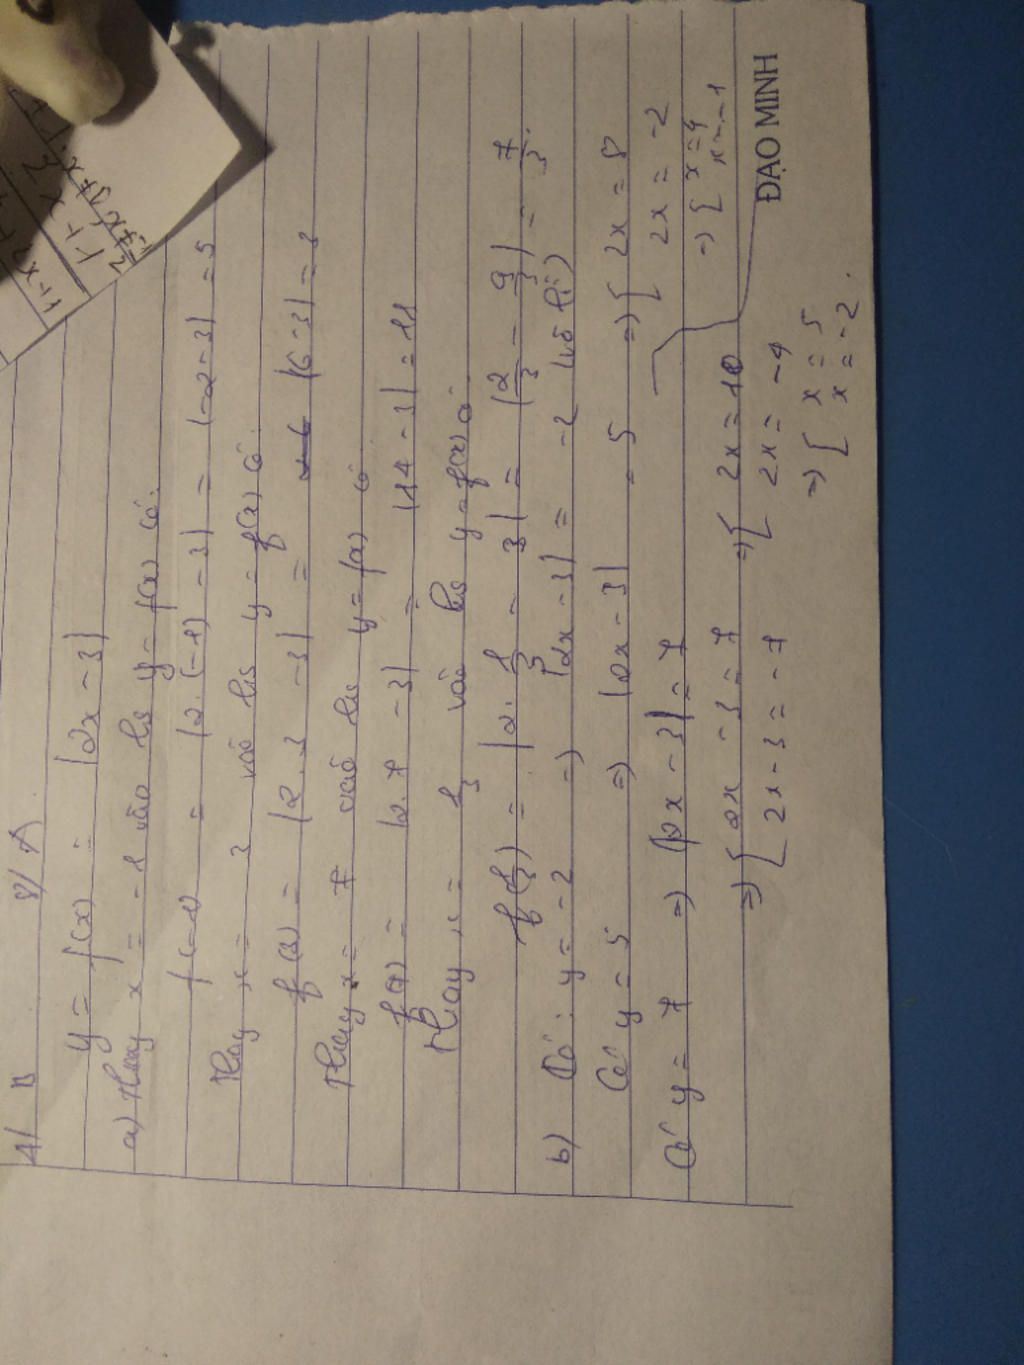 y = f(x) = |2x - 3|
a) Thay x = -1 vào hs y = f(x) có.
f(-1) = |2.(-1) - 3| = |-2-3| = 5
Thay x = 3 vào hs y = f(x) có.
f(3) = |2.3 - 3| = |6-3| = 3
Thay x = 7 vào hs y = f(x) có
f(7) = |2.7 - 3| = |14-3| = 11
Thay x = 1/3 vào hs y = f(x) có.
f(1/3) = |2.1/3 - 3| = |2/3 - 9/3| = 7/3.
b) Có : y = -2 => |2x - 3| = -2 (vô lí)
Có y = 5 => |2x - 3| = 5 => [ 2x = 8
2x = -2
=> [ x = 4
x = -1
Có y = 7 => |2x - 3| = 7
=> [ 2x - 3 = 7 => [ 2x = 10
2x - 3 = -7 2x = -4
=> [ x = 5
x = -2.
ĐẠO MINH